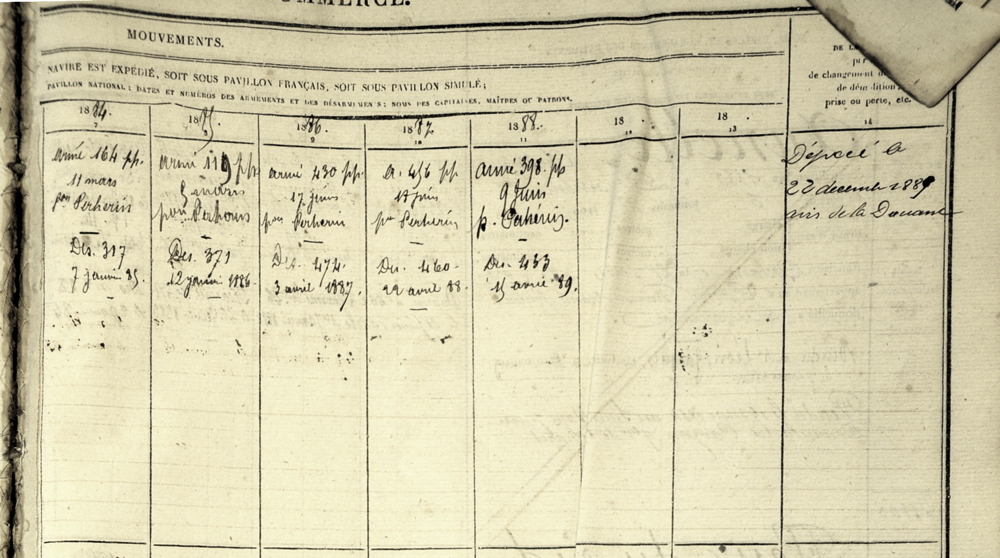 COMMERCE.
MOUVEMENTS.
NAVIRE EST EXPÉDIÉ, SOIT SOUS PAVILLON FRANÇAIS, SOIT SOUS PAVILLON SIMULÉ;
PAVILLON NATIONAL; DATES ET NUMÉROS DES ARMEMENTS ET DES DÉSARMEMENS; NOMS DES CAPITAINES, MAÎTRES OU PATRONS.
1884.
7
Armé 164 pp.
11 mars
pon
Dés. 317
7 janvier 85.
1885
Armé 119 pp
5 mars
pon
Dés. 371
12 janvier 1886
1886.
9
Armé 430 pp.
17 juin
pon
Dés. 474.
3 avril 1887.
1887
10
A. 456 pp.
18 juin
pon
Dés. 460.
22 avril 88.
1888.
11
Armé 398 pp
9 Juin
p.
Dés. 433
15 avril 89.
18
12
18
13
DE
de changement
de démolition,
prise ou perte, etc.
14
Dépecé le
22 décembre 1889
avis de la Douane